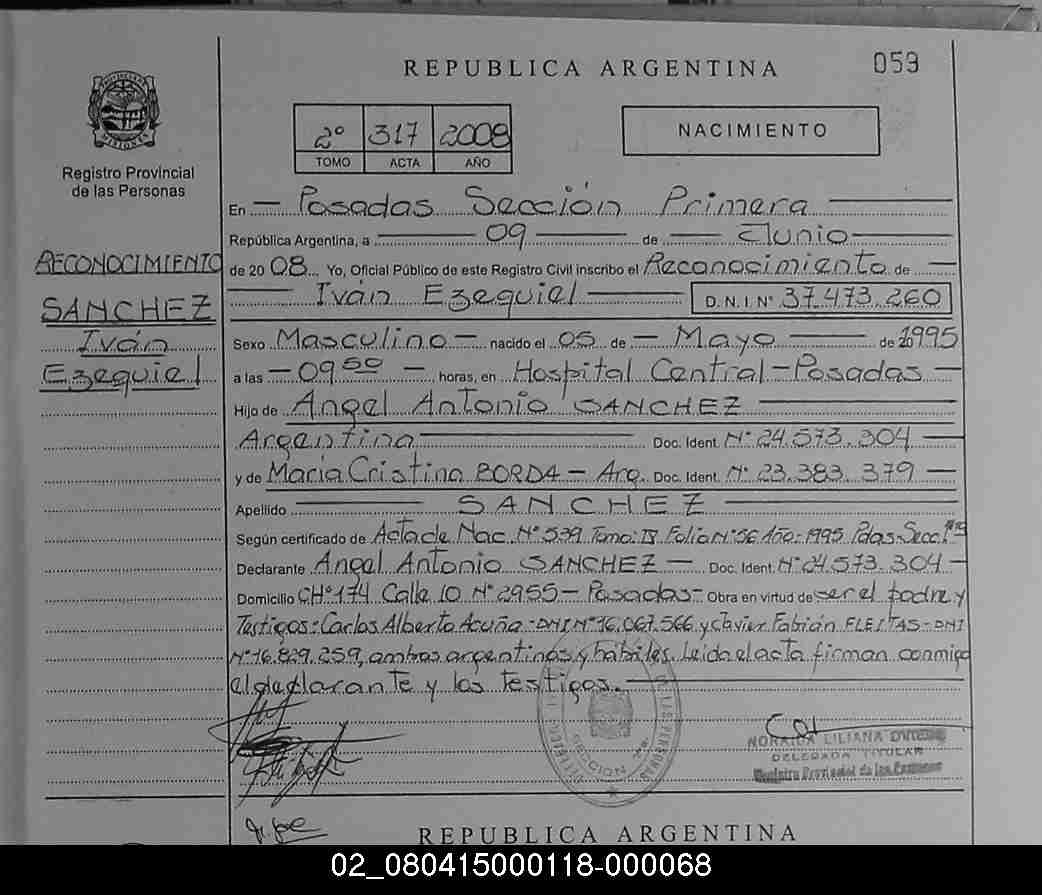 REPUBLICA ARGENTINA
059
Registro Provincial
de las Personas
2º 317 2008
TOMO ACTA AÑO
NACIMIENTO
RECONOCIMIENTO
SANCHEZ
Iván
Ezequiel
En — Posadas Sección Primera —
República Argentina, a — 09 — de — Junio —
de 2008... Yo, Oficial Público de este Registro Civil inscribo el Reconocimiento de —
— Iván Ezequiel — D.N.I Nº 37.473.260
Sexo Masculino — nacido el 05 de — Mayo — de 1995
a las — 09 50 — horas, en Hospital Central - Posadas —
Hijo de Angel Antonio SANCHEZ —
Argentina — Doc. Ident. Nº 24.573.304 —
y de María Cristina BORDA — Arg. Doc. Ident. Nº 23.383.379 —
Apellido — SANCHEZ —
Según certificado de Acta de Nac. Nº 539 Tomo: IV Folio Nº 56 Año: 1995 Pdas. Secc. 1ª
Declarante Angel Antonio SANCHEZ — Doc. Ident. Nº 24.573.304 —
Domicilio CHº 174 Calle 10 Nº 2955 - Posadas - Obra en virtud de ser el padre y
Testigos: Carlos Alberto Acuña - DNI Nº 16.067.566 y Javier Fabián FLEITAS - DNI
Nº 16.829.259, ambos argentinos y hábiles. Leida el acta firman conmigo
el declarante y los testigos. —
SECCION
NORAIDA LILIANA OVIEDO
DELEGADA TITULAR
Registro Provincial de las Personas
REPUBLICA ARGENTINA
02_080415000118-000068